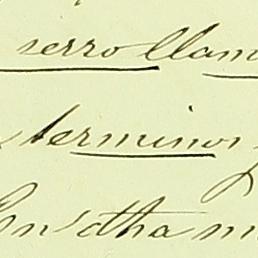 serro llam
terminos
En dtha m